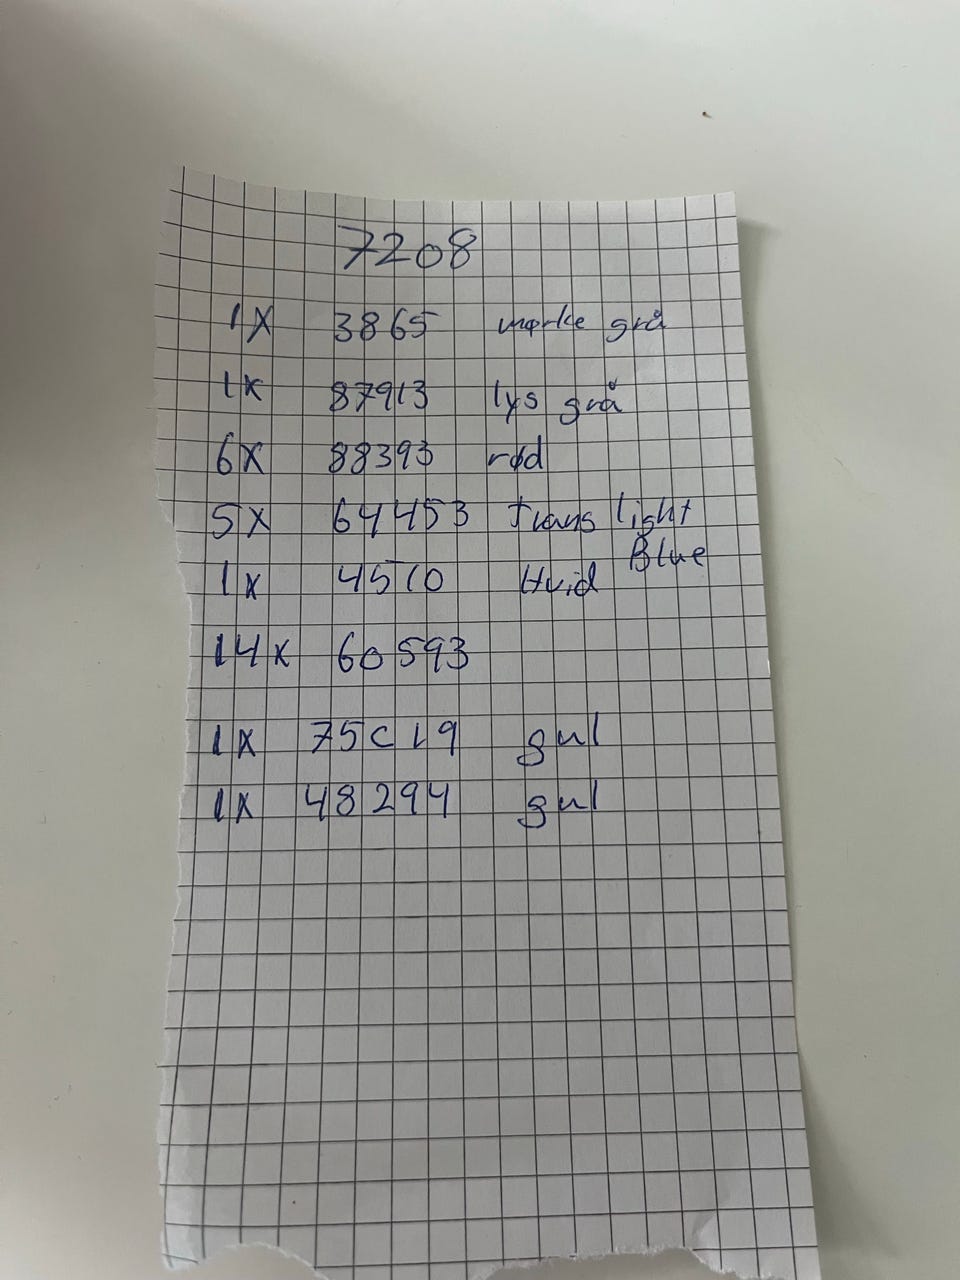 7208
1X 3865 mørke grå
1X 87913 lys grå
6X 88393 rød
5X 64453 trans light
Blue
1X 4510 Hvid
14X 60593
1X 75C19 gul
1X 48294 gul